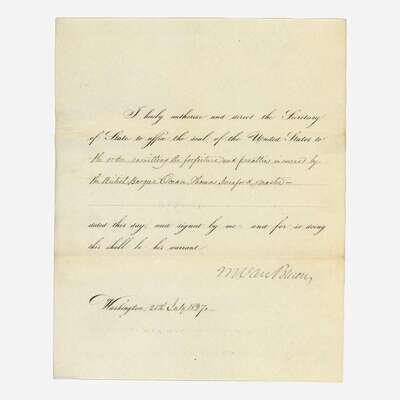 I hereby authorise and direct the Secretary
of State to affix the seal of the United States to
the order remitting the forfeiture and penalties incurred by
the British Barque Ocean, Thomas master—
dated this day, and signed by me: and for so doing
this shall be his warrant.
M Van Buren
Washington, 28th July 1837.